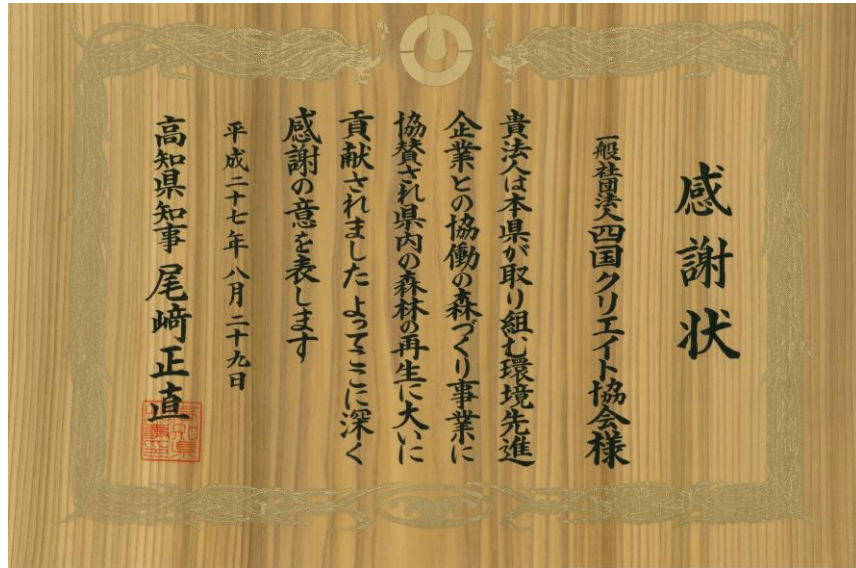 感謝状
一般社団法人四国クリエイト協会様
貴法人は本県が取り組む環境先進
企業との協働の森づくり事業に
協賛され県内の森林の再生に大いに
貢献されました よってここに深く
感謝の意を表します
平成二十七年八月二十九日
高知県知事 尾﨑正直